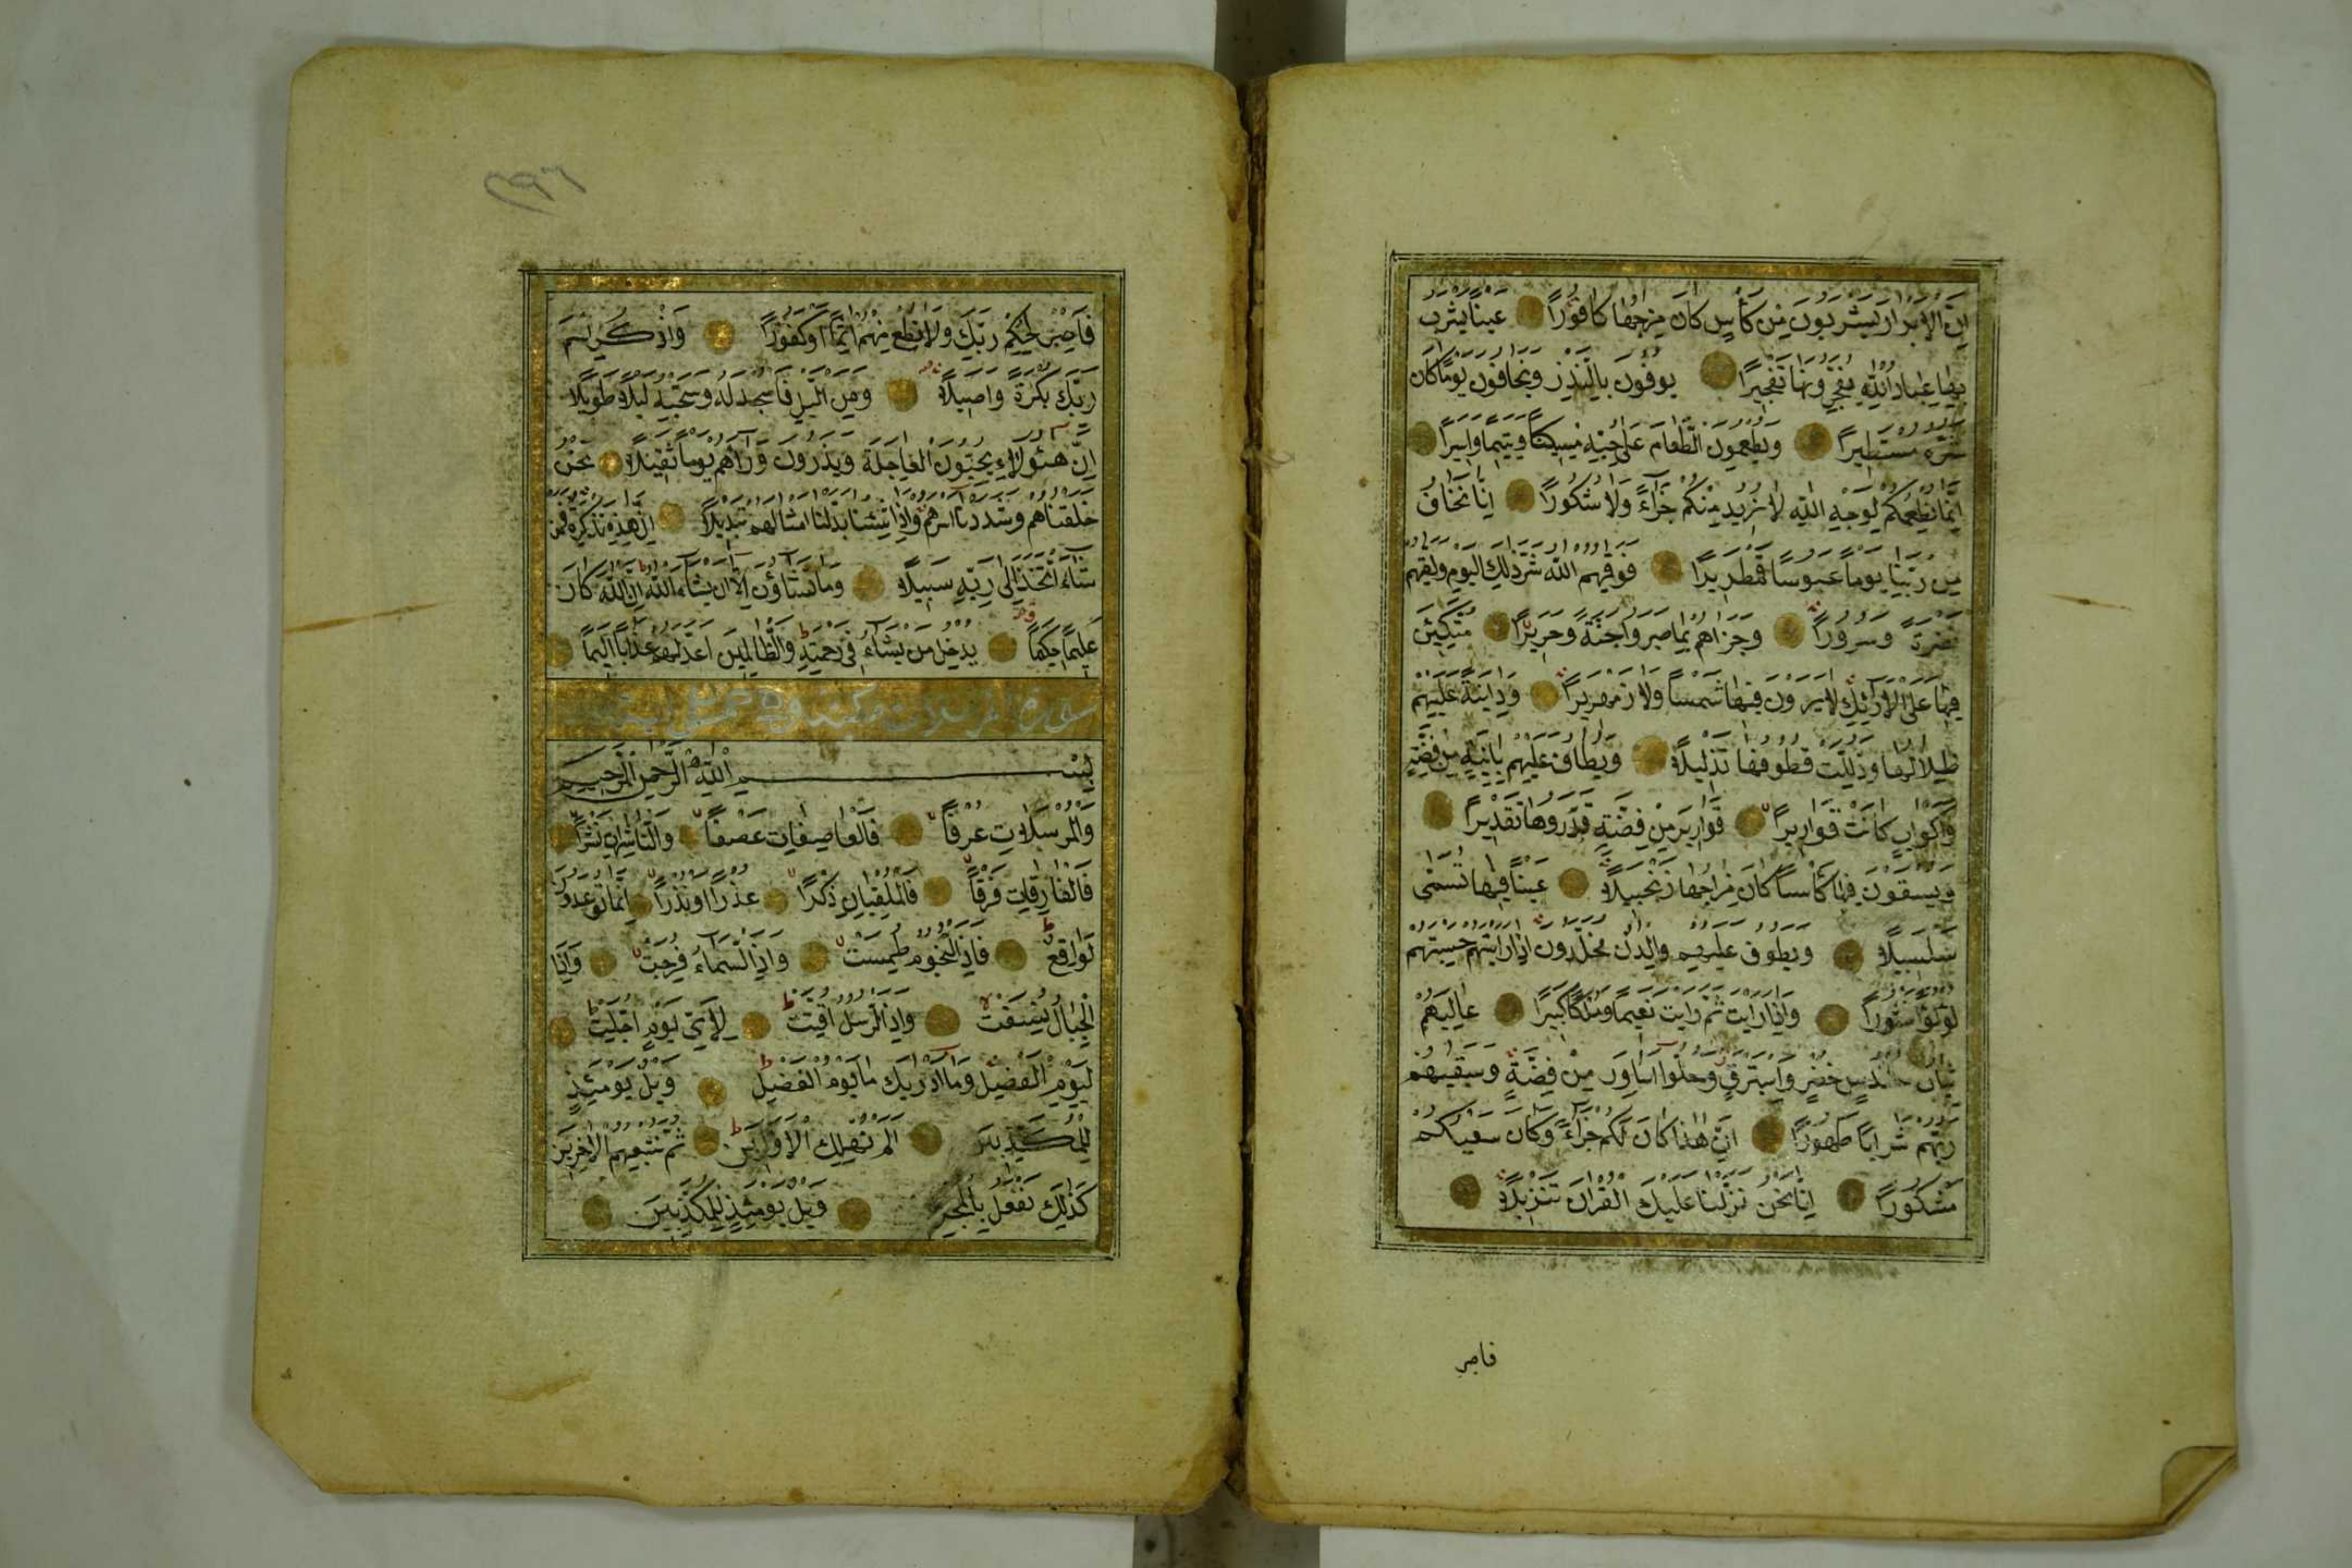 إن الأبرار يشربون من كأس كان مزاجها كافورا عينا يشرب
بها عباد الله يفجرونها تفجيرا يوفون بالنذر ويخافون يوما كان
شره مستطيرا ويطعمون الطعام على حبه مسكينا ويتيما وأسيرا
إنما نطعمكم لوجه الله لا نريد منكم جزاء ولا شكورا إنا نخاف
من ربنا يوما عبوسا قمطريرا فوقيهم الله شر ذلك اليوم ولقيهم
نضرة وسرورا وجزاهم بما صبروا جنة وحريرا متكئين
فيها على الأرائك لا يرون فيها شمسا ولا زمهريرا ودانية عليهم
ظلالها وذللت قطوفها تذليلا ويطاف عليهم بآنية من فضة
وأكواب كانت قواريرا قوارير من فضة قدروها تقديرا
ويسقون فيها كأسا كان مزاجها زنجبيلا عينا فيها تسمى
سلسبيلا ويطوف عليهم ولدان مخلدون إذا رأيتهم حسبتهم
لؤلؤا منثورا وإذا رأيت ثم رأيت نعيما وملكا كبيرا عاليهم
ثياب سندس خضر وإستبرق وحلوا أساور من فضة وسقيهم
ربهم شرابا طهورا إن هذا كان لكم جزاء وكان سعيكم
مشكورا إنا نحن نزلنا عليك القرآن تنزيلا
فاصبر
٢٩٦
فاصبر لحكم ربك ولا تطع منهم آثما أو كفورا واذكر اسم
ربك بكرة وأصيلا ومن الليل فاسجد له وسبحه ليلا طويلا
إن هؤلاء يحبون العاجلة ويذرون وراءهم يوما ثقيلا نحن
خلقناهم وشددنا أسرهم وإذا شئنا بدلنا أمثالهم تبديلا إن هذه تذكرة فمن
شاء اتخذ إلى ربه سبيلا وما تشاؤن إلا أن يشاء الله إن الله كان
عليما حكيما يدخل من يشاء في رحمته والظالمين أعد لهم عذابا أليما
سورة المرسلات مكية وهي خمسون آية
بسم الله الرحمن الرحيم
والمرسلات عرفا فالعاصفات عصفا والناشرات نشرا
فالفارقات فرقا فالملقيات ذكرا عذرا أو نذرا إنما توعدون
لواقع فإذا النجوم طمست وإذا السماء فرجت وإذا
الجبال نسفت وإذا الرسل أقتت لأي يوم أجلت
ليوم الفصل وما أدريك ما يوم الفصل ويل يومئذ
للمكذبين ألم نهلك الأولين ثم نتبعهم الآخرين
كذلك نفعل بالمجرمين ويل يومئذ للمكذبين